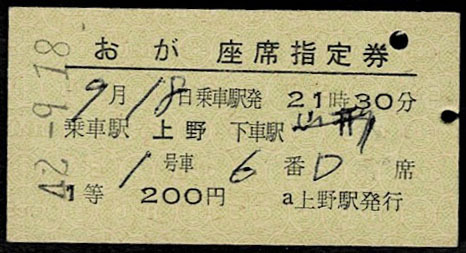 おが 座席指定券
9月18日乗車駅発 21時30分
乗車駅 上野 下車駅 山形
1号車 6番D席
1等 200円 a上野駅発行
42.-9.18